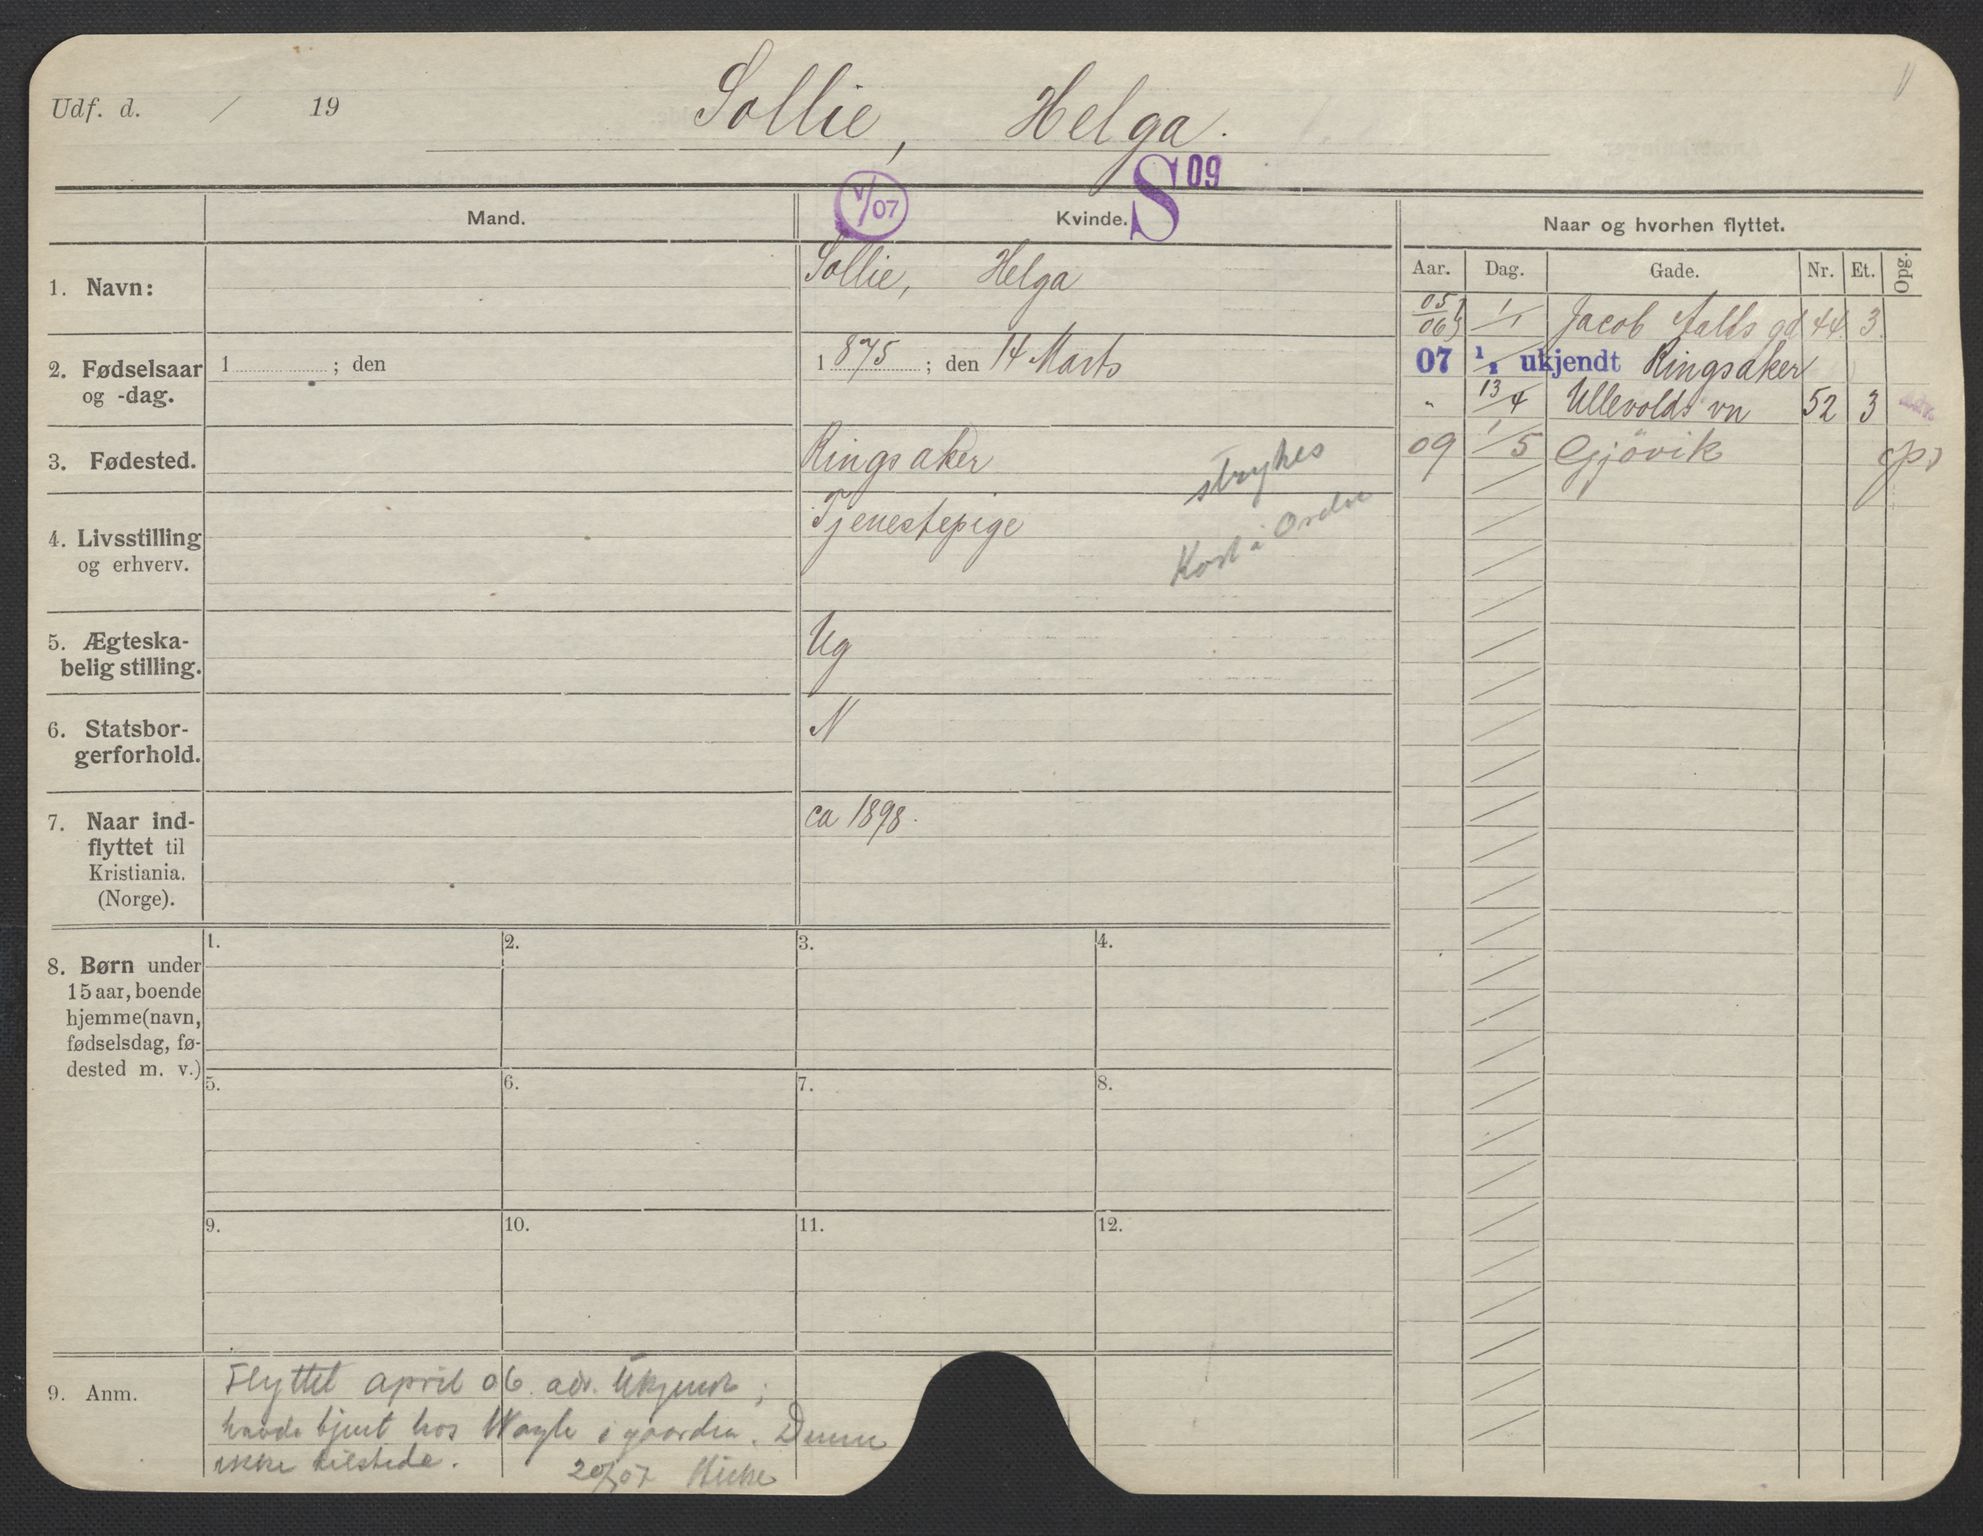 Udf. d. / 19
Sollie, Helga.
S 09
V/07
Mand.
Kvinde.
Naar og hvorhen flyttet.
Aar. Dag. Gade. Nr. Et. Opg.
1. Navn:
Sollie, Helga
2. Fødselsaar
og -dag.
1 ; den
1875 ; den 14 Marts
3. Fødested.
Ringsaker
4. Livsstilling
og erhverv.
Tjenestepige
strykes
Kost i
5. Ægteska-
belig stilling.
Ug
6. Statsbor-
gerforhold.
N
7. Naar ind-
flyttet til
Kristiania.
(Norge).
ca 1898.
05/06 1/1 Jacob Aalls gd 44 3
07 1/1 ukjendt Ringsaker
" 13/4 Ullevolds vn 52 3
09 1/5 Gjövik
8. Børn under
15 aar, boende
hjemme (navn,
fødselsdag, fø-
dested m. v.)
1. 2. 3. 4.
5. 6. 7. 8.
9. 10. 11. 12.
9. Anm.
Flyttet april 06 adr. Ukjendt;
havde tjent hos i gaarden. Denne
ikke tilstede.
20/07